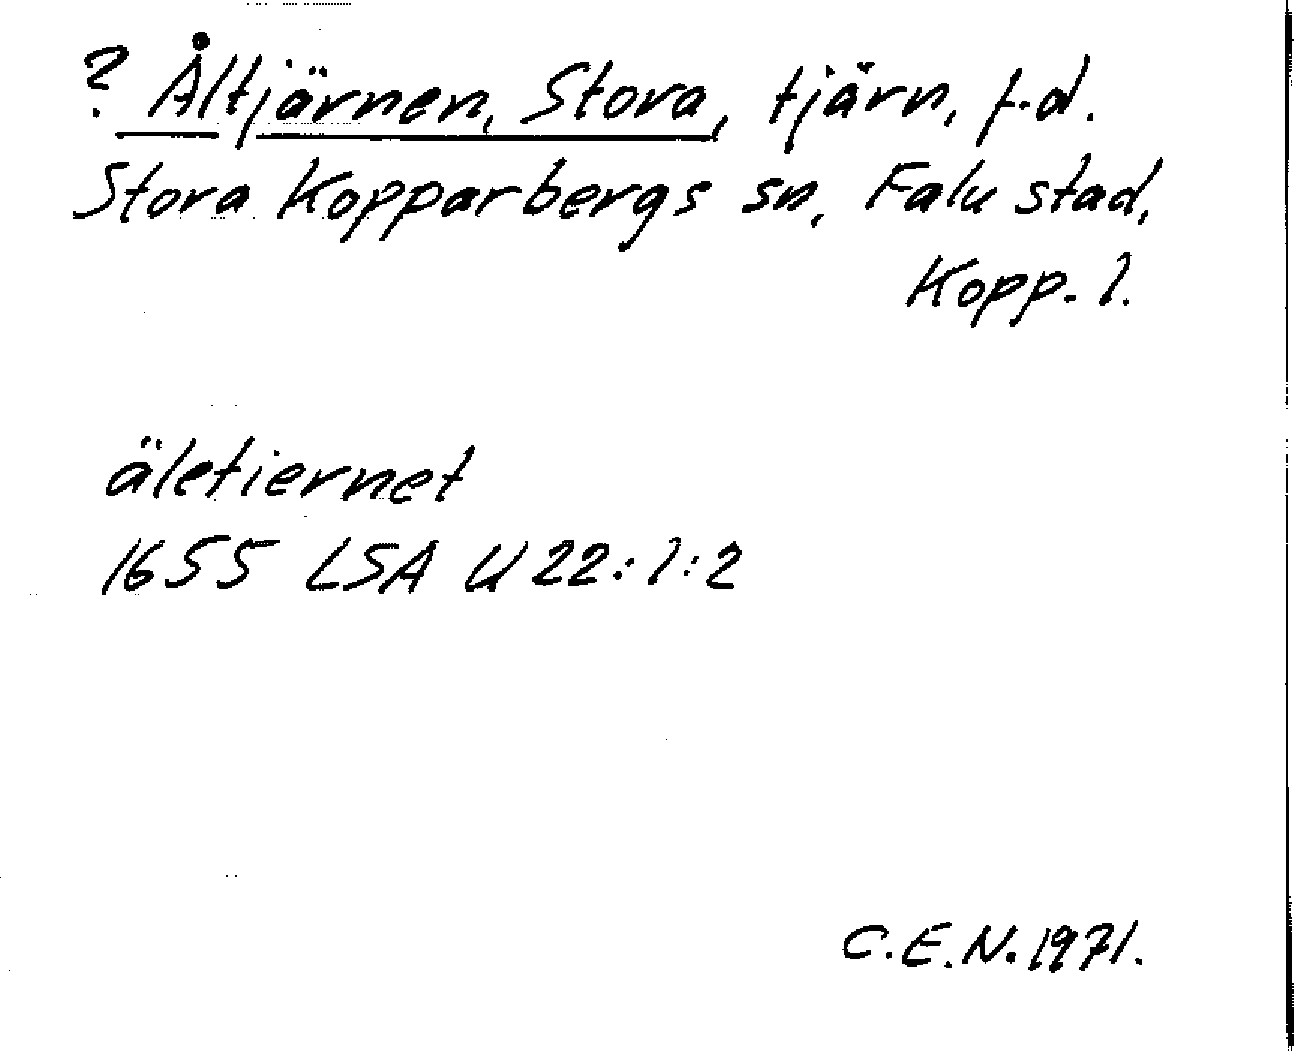 ? Åltjärnen, Stora, tjärn, f.d.
Stora Kopparbergs sn, Falu stad,
Kopp. l.
äletiernet
1655 LSA U 22:1:2
C.E.N. 1971.